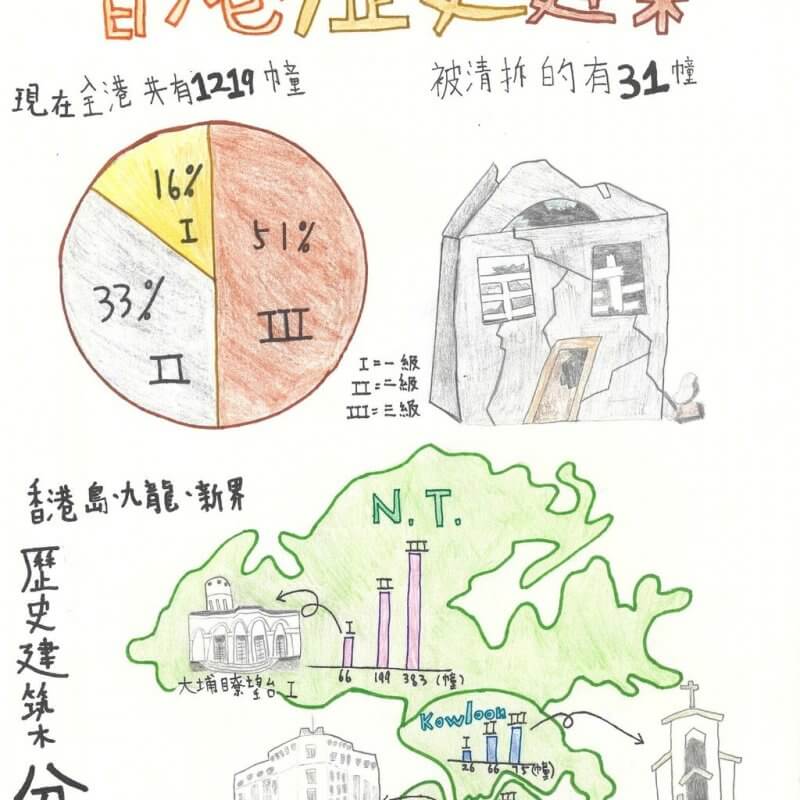 香港歷史建築
現在全港共有1219幢
被清拆的有31幢
16%
I
51%
III
33%
II
I=一級
II=二級
III=三級
香港島、九龍、新界
歷史建築分
N.T.
I
II
III
66 199 383 (幢)
大埔瞭望台 I
Kowloon
I
II
III
26 66 75(幢)
III